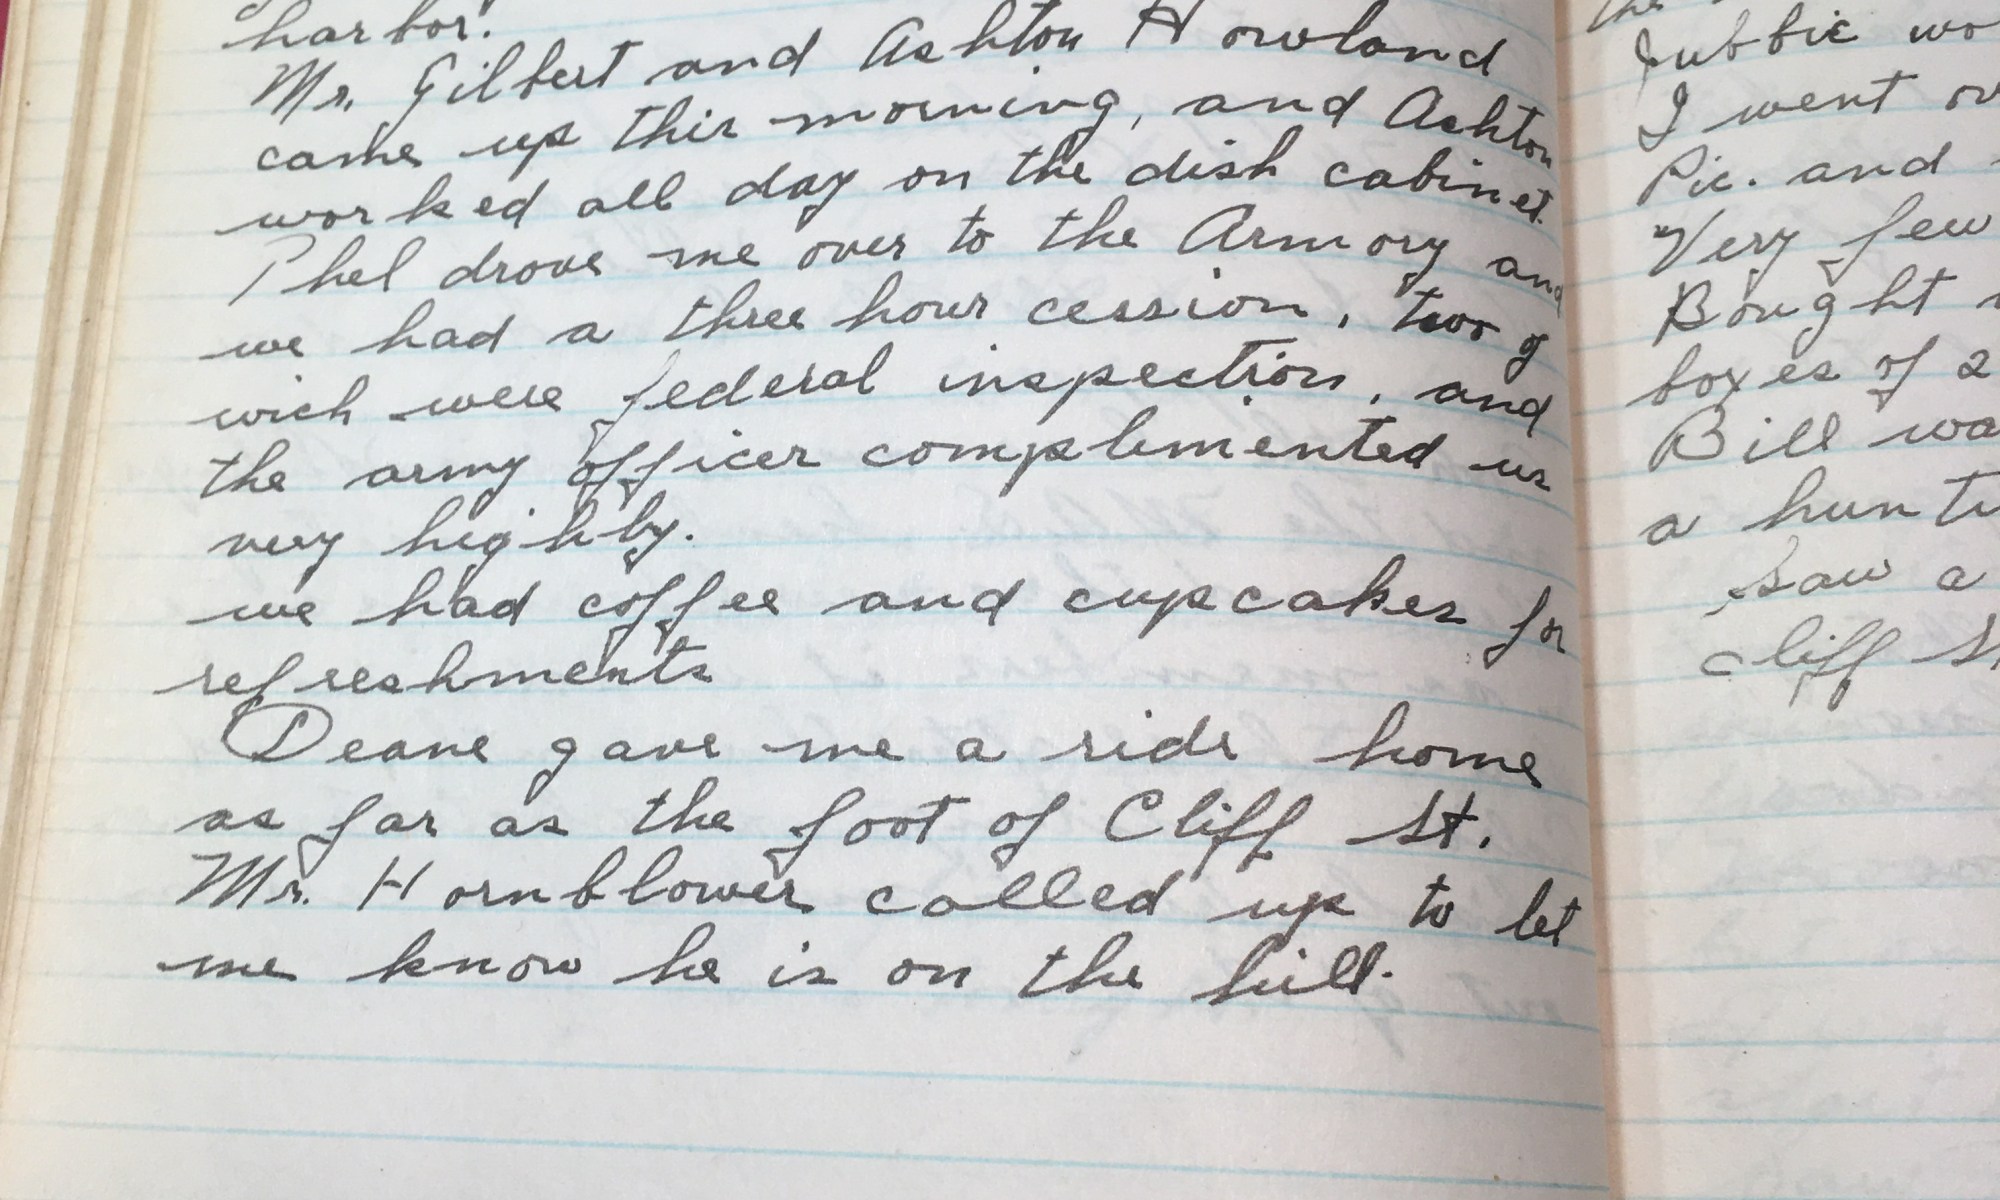 harbor.
Mr. Gilbert and Ashton Howland
came up this morning, and Ashton
worked all day on the dish cabinet.
Phel drove me over to the Armory and
we had a three hour cession, two of
wich were federal inspection, and
the army officer complimented us
very highly.
we had coffee and cupcakes for
refreshments
Deane gave me a ride home
as far as the foot of Cliff St.
Mr. Hornblower called up to let
me know he is on the hill.
the
Jubbie wo
I went ov
Pic. and
Very few
Bought
boxes of 2
Bill wa
a hunti
saw a
cliff St